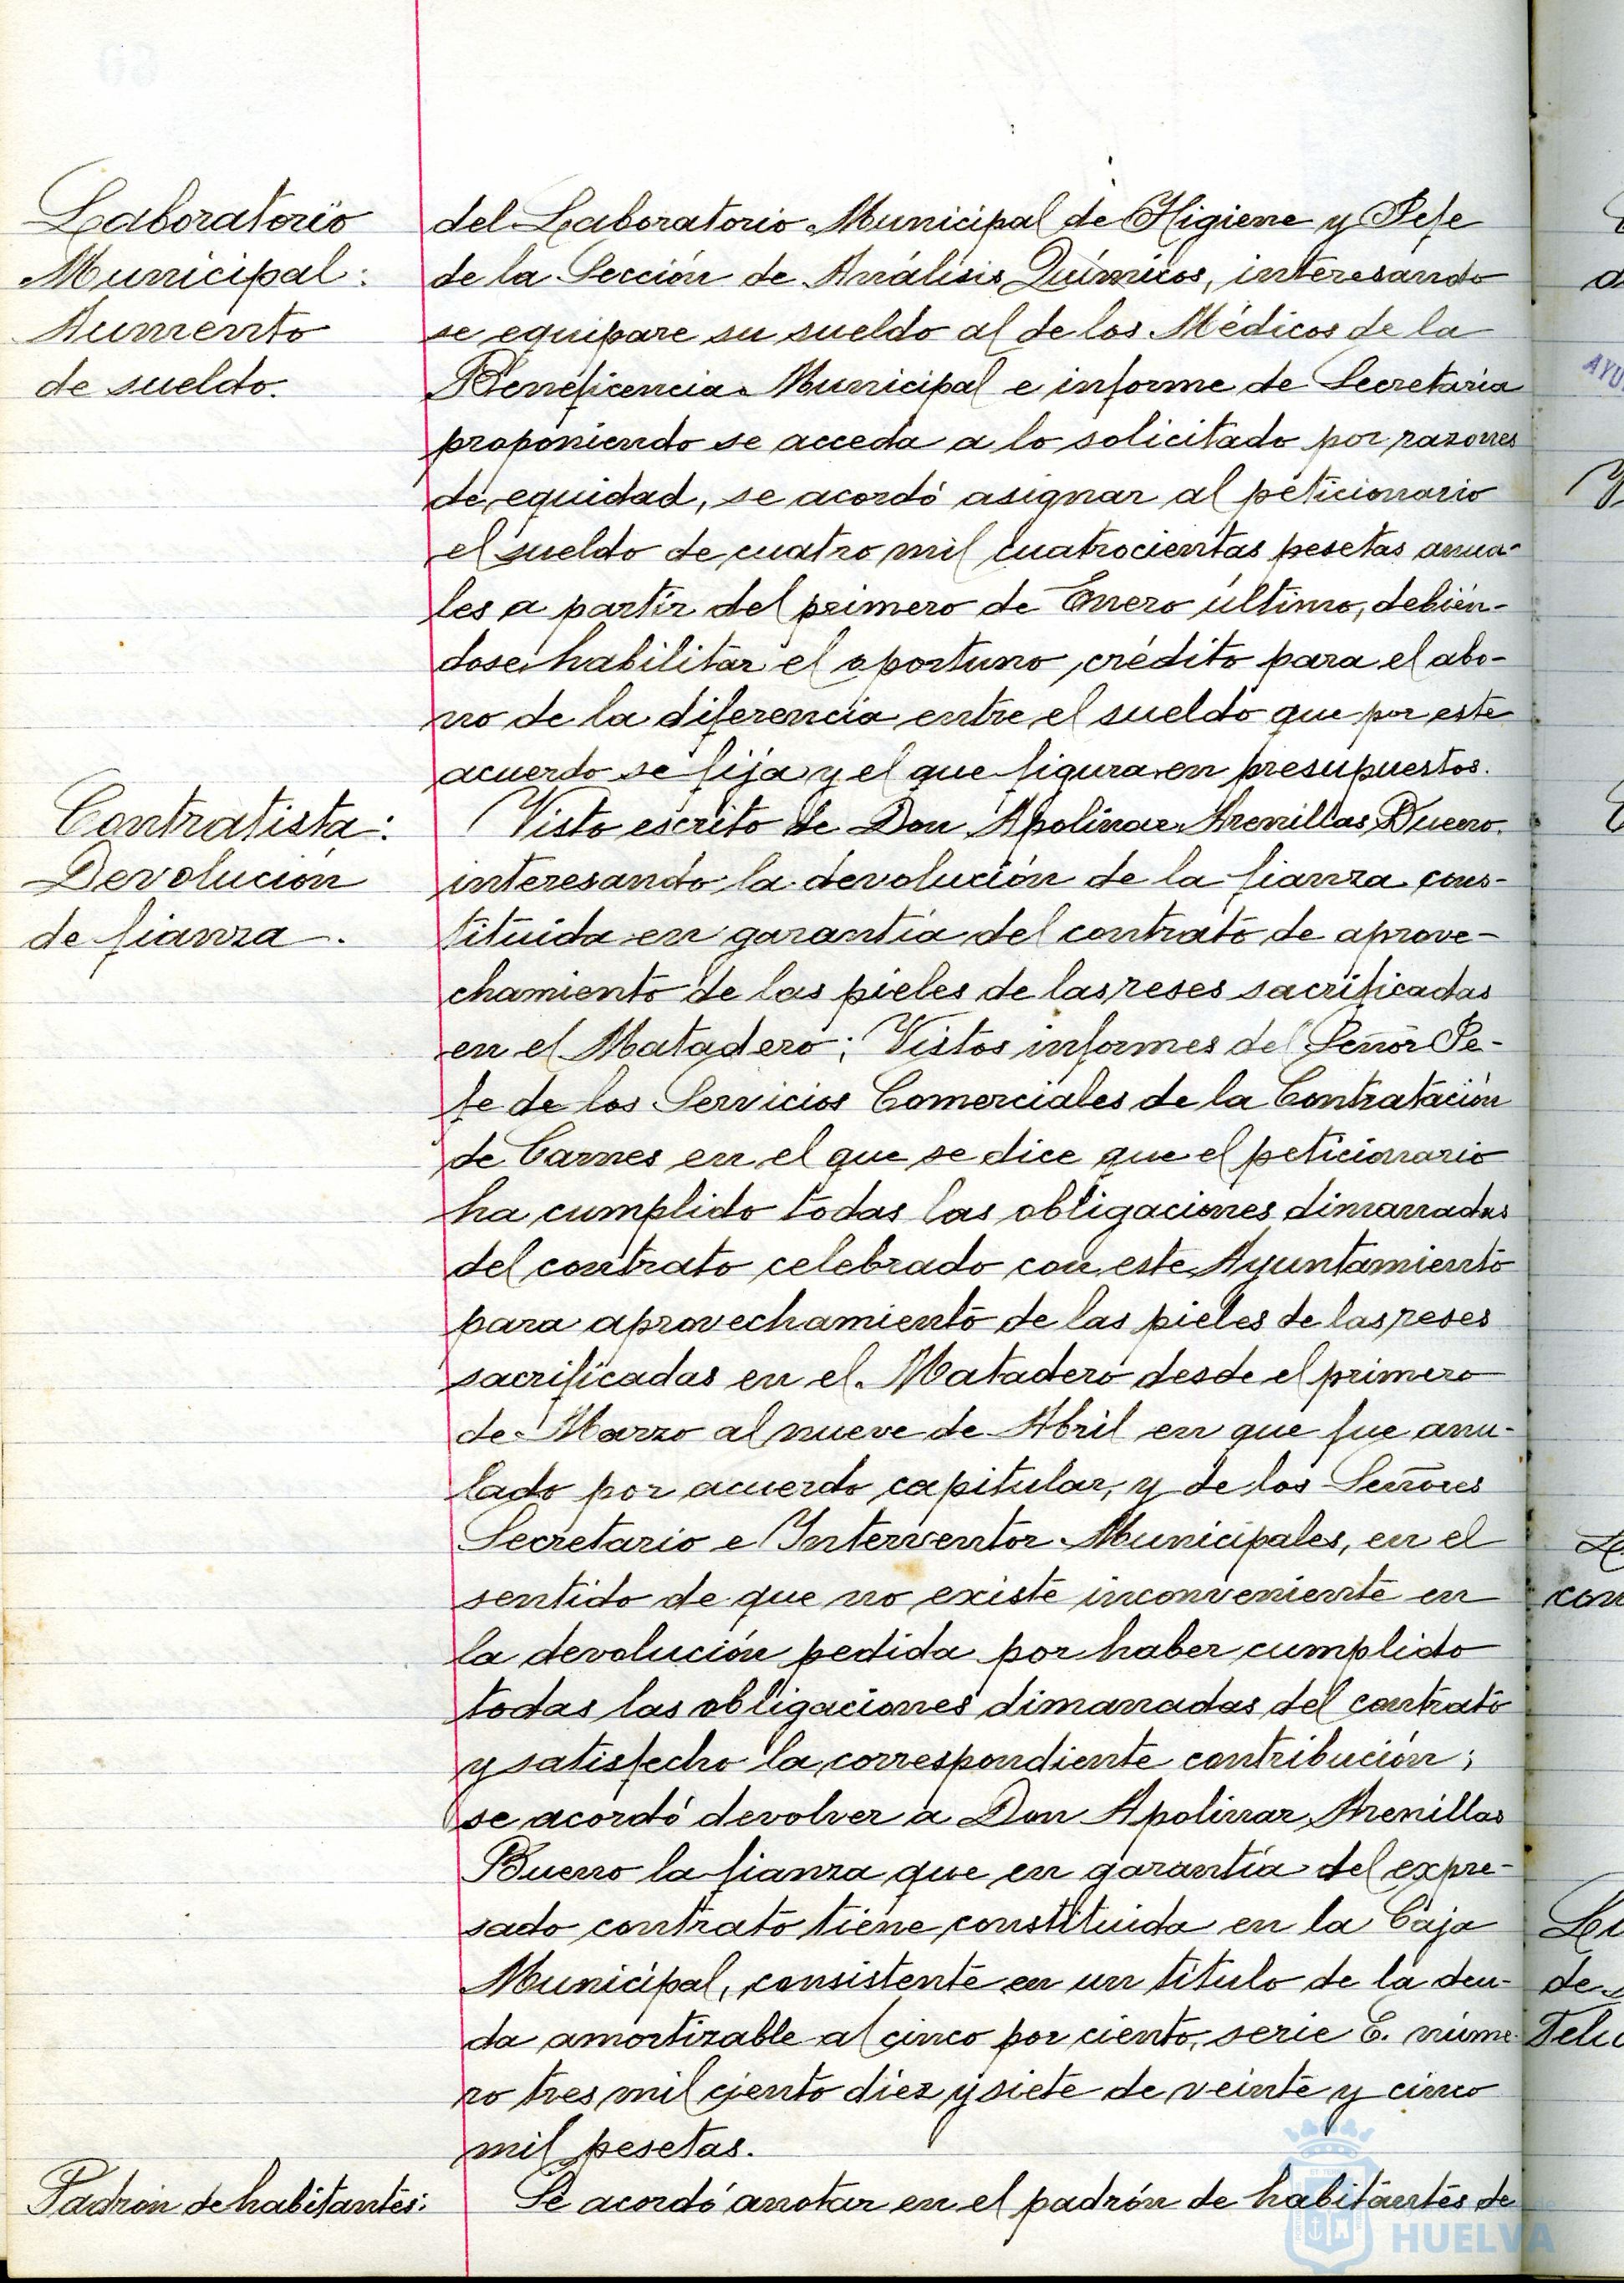 Laboratorio
Municipal:
Aumento
de sueldo.
del Laboratorio Municipal de Higiene y Jefe
de la Sección de Análisis Químicos, interesando
se equipare su sueldo al de los Médicos de la
Beneficencia Municipal e informe de Secretaria
proponiendo se acceda a lo solicitado por razones
de equidad, se acordó asignar al peticionario
el sueldo de cuatro mil cuatrocientas pesetas anua-
les a partir del primero de Enero último, debién-
dose habilitar el oportuno crédito para el abo-
no de la diferencia entre el sueldo que por este
acuerdo se fija y el que figura en presupuestos.
Contratista:
Devolución
de fianza.
Visto escrito de Don Apolinar Arenillas Bueno
interesando la devolución de la fianza cons-
tituida en garantía del contrato de aprove-
chamiento de las pieles de las reses sacrificadas
en el Matadero; Vistos informes del Señor Je-
fe de los Servicios Comerciales de la Contratación
de Carnes en el que se dice que el peticionario
ha cumplido todas las obligaciones dimanadas
del contrato celebrado con este Ayuntamiento
para aprovechamiento de las pieles de las reses
sacrificadas en el Matadero desde el primero
de Marzo al nueve de Abril en que fue anu-
lado por acuerdo capitular, y de los Señores
Secretario e Interventor Municipales, en el
sentido de que no existe inconveniente en
la devolución pedida por haber cumplido
todas las obligaciones dimanadas del contrato
y satisfecho la correspondiente contribución;
se acordó devolver a Don Apolinar Arenillas
Bueno la fianza que en garantía del expre-
sado contrato tiene constituida en la Caja
Municipal, consistente en un título de la deu-
da amortizable al cinco por ciento, serie E. núme
ro tres mil ciento diez y siete de veinte y cinco
mil pesetas.
Padrón de habitantes:
Se acordó anotar en el padrón de habitantes de
HUELVA